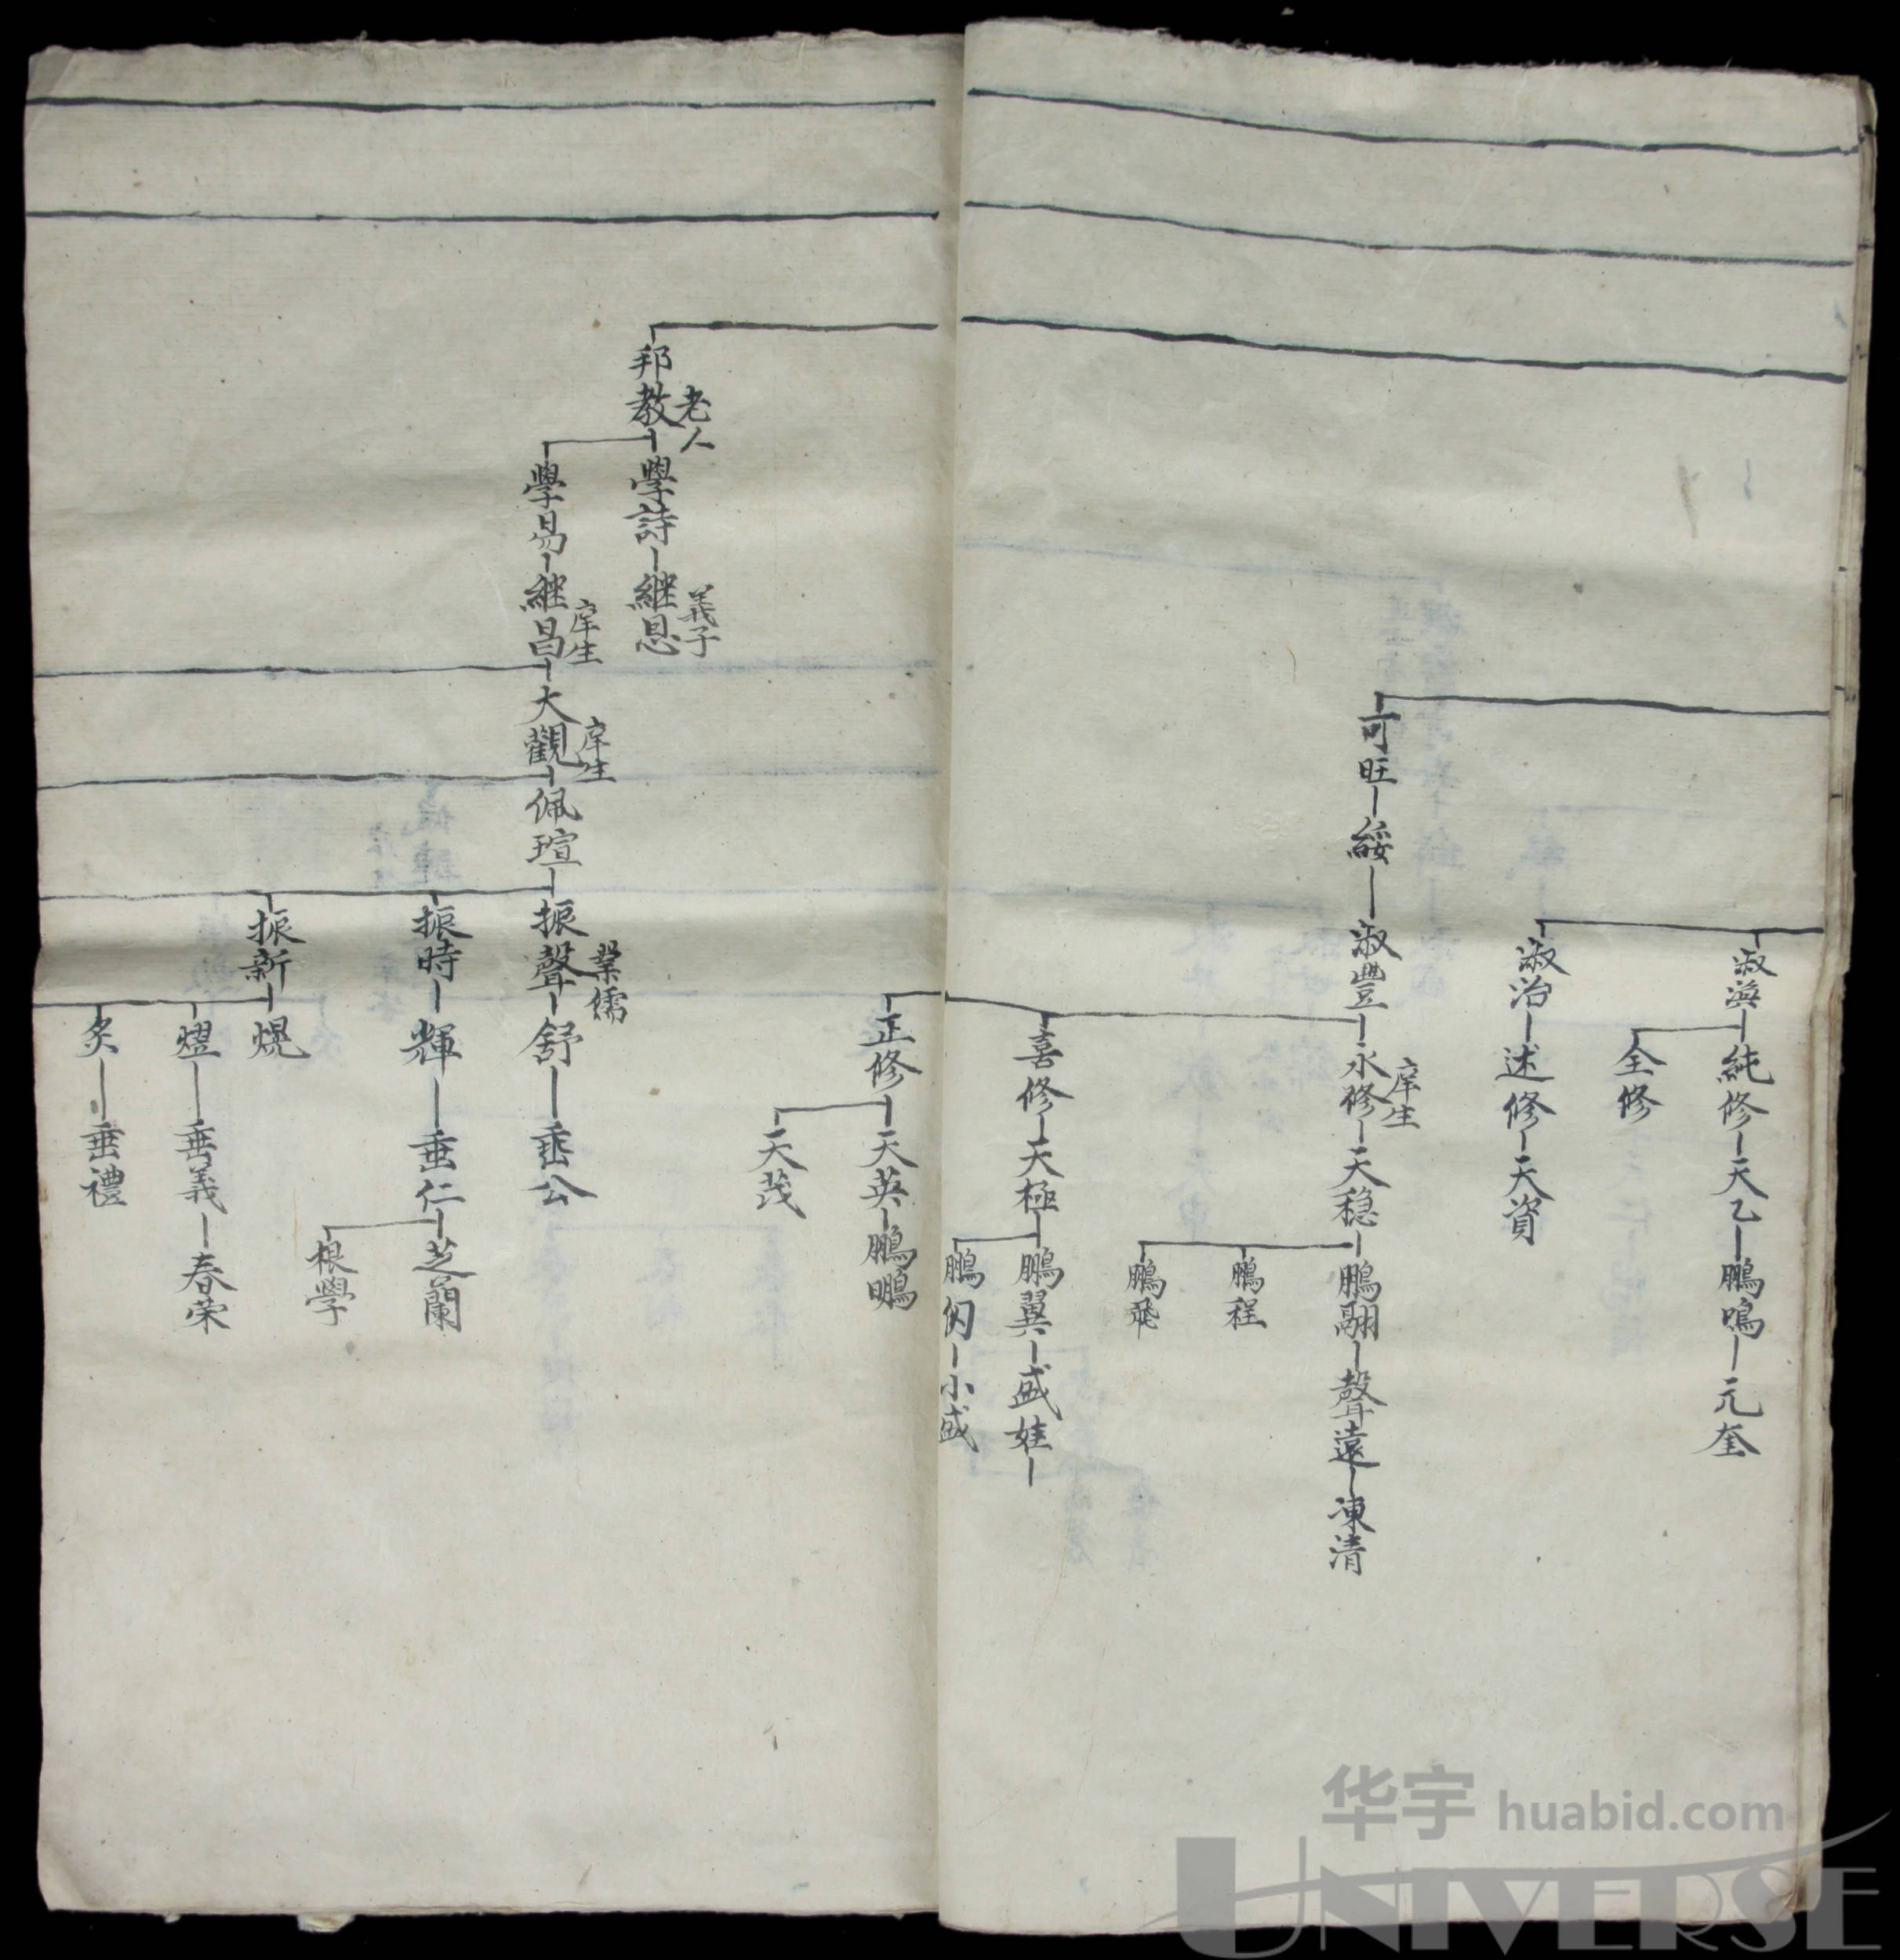 淑海
純修
天乙
鵬鳴
元奎
全修
淑治
述修
天資
可旺
綏
淑豐
永修
庠生
天穏
鵬翮
聲遠
凍清
鵬程
鵬飛
喜修
天極
鵬翼
盛娃
鵬
小盛
正修
天英
鵬鵰
天茂
邦教
老人
學詩
継恩
義子
學易
継昌
庠生
大觀
庠生
佩瑄
振聲
業儒
舒
垂公
振時
輝
垂仁
芝蘭
根學
振新
熀
熤
垂義
春荣
炙
垂禮
华宇 huabid.com
UNIVERSE